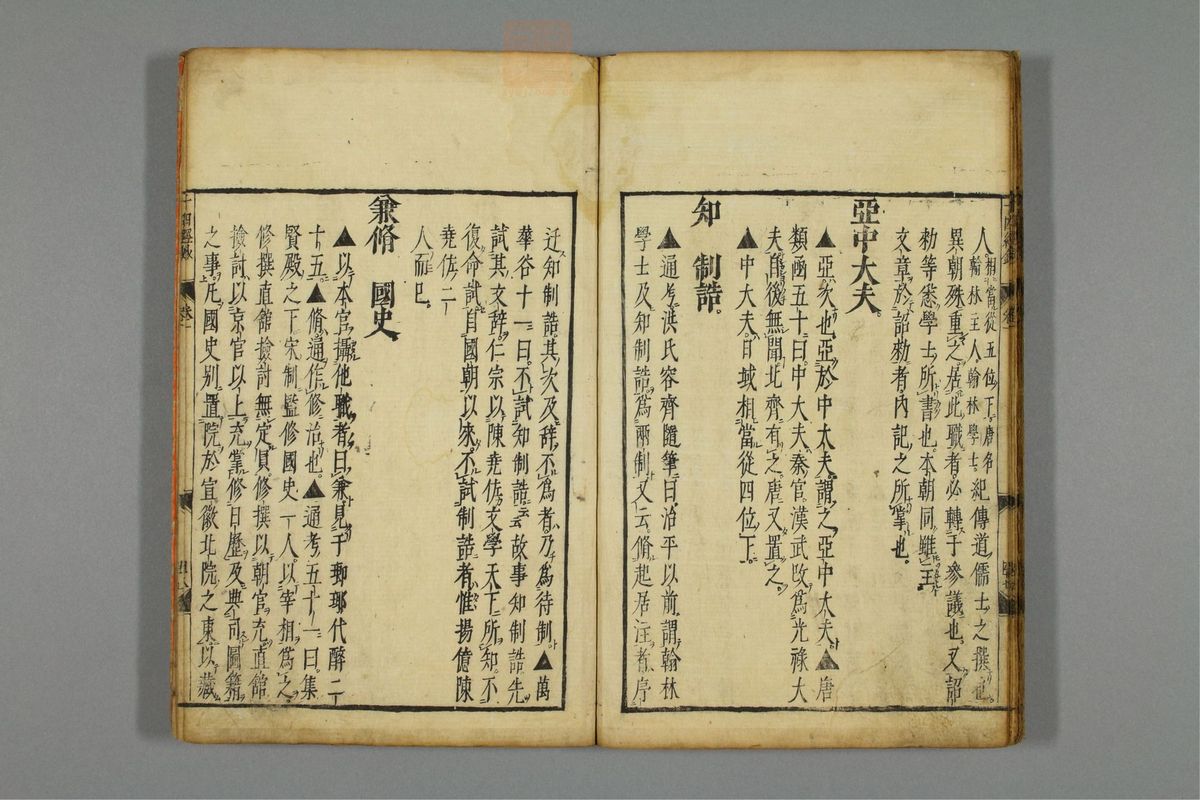 人相當從五位下唐名
翰林主人翰林學士紀傳道儒士之撰也
異朝殊重之居此職者必轉于參議也又詔
勅等悉學士所書也本朝同雖
文章於詔勅者內記之所掌也
亞中大夫
▲亞次也亞於中太夫謂之亞中太夫▲唐
類函五十曰中大夫秦官漢武改爲光祿大
夫自後無聞北齊有之唐又置之
▲中大夫日域相當從四位下
知制誥
▲通考洪氏容齊隨筆曰治平以前謂翰林
學士及知制誥爲兩制又云脩起居注者序
迁知制誥其次及辞不爲者乃爲待制▲萬
華谷十一曰不試知制誥云故事知制誥先
試其文辞仁宗以陳堯佐文學天下所知不
復命試自國朝以來不試制誥者惟揚億陳
堯佐二
人而巳
兼脩國史
▲以本官攝他職者曰兼見于瑯琊代醉二
十五▲脩通作修治也▲通考五十一曰集
賢殿之下宋制監修國史一人以宰相爲之
修撰直館撿討無定員修撰以朝官充直館
撿討以京官以上充掌修日歷及典司圖籍
之事凡國史别置院於宣徽北院之東以藏